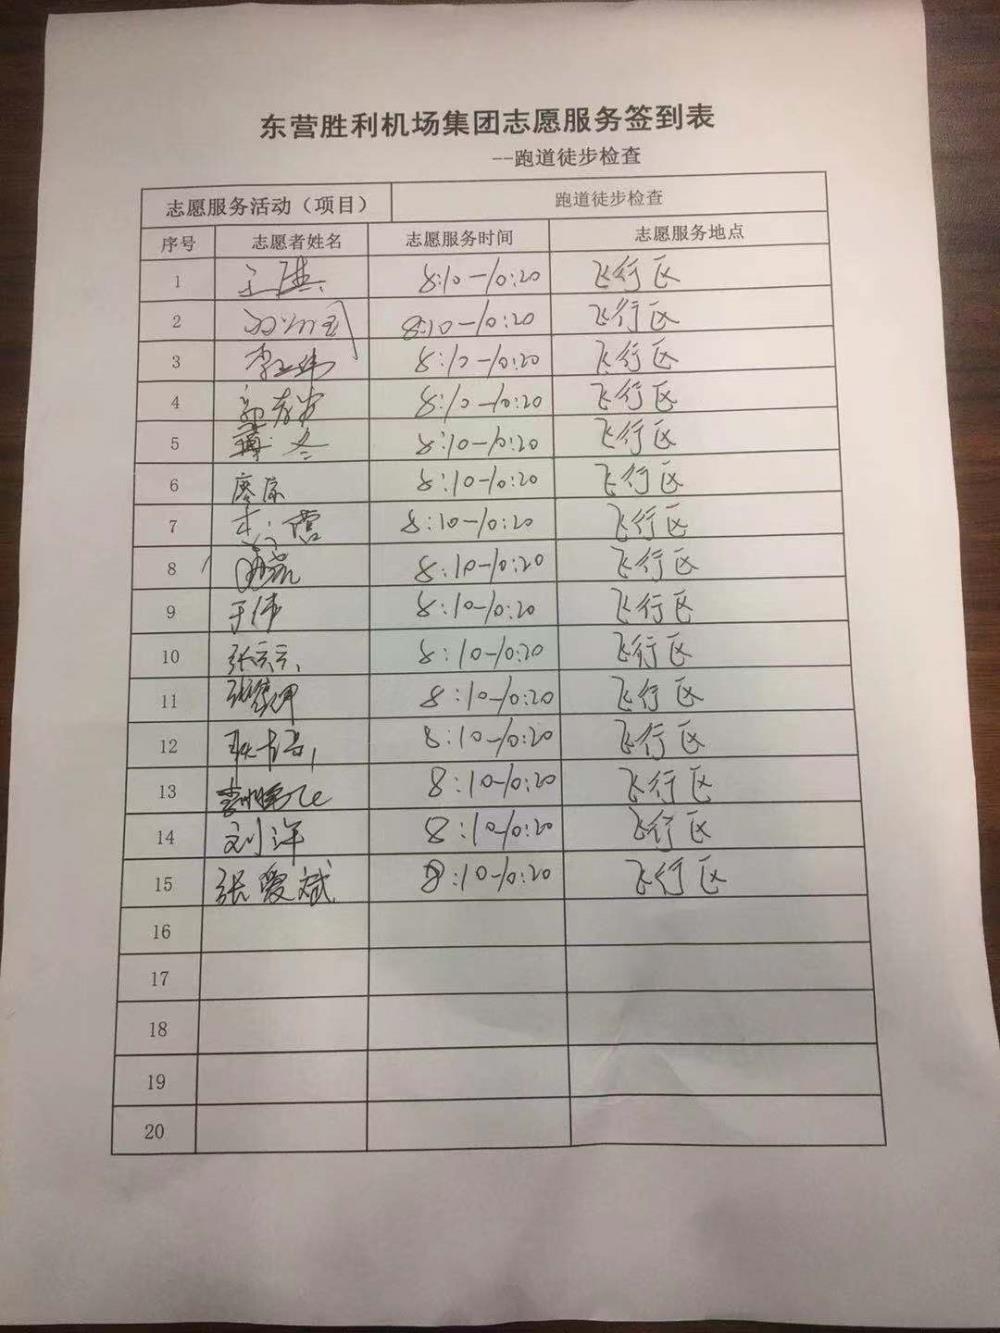 东营胜利机场集团志愿服务签到表
--跑道徒步检查
志愿服务活动（项目） 跑道徒步检查
序号 志愿者姓名 志愿服务时间 志愿服务地点
1 8:10-10:20 飞行区
2 8:10-10:20 飞行区
3 8:10-10:20 飞行区
4 8:10-10:20 飞行区
5 8:10-10:20 飞行区
6 廖原 8:10-10:20 飞行区
7 8:10-10:20 飞行区
8 8:10-10:20 飞行区
9 于伟 8:10-10:20 飞行区
10 张云云 8:10-10:20 飞行区
11 8:10-10:20 飞行区
12 8:10-10:20 飞行区
13 8:10-10:20 飞行区
14 刘洋 8:10-10:20 飞行区
15 张爱斌 8:10-10:20 飞行区
16
17
18
19
20